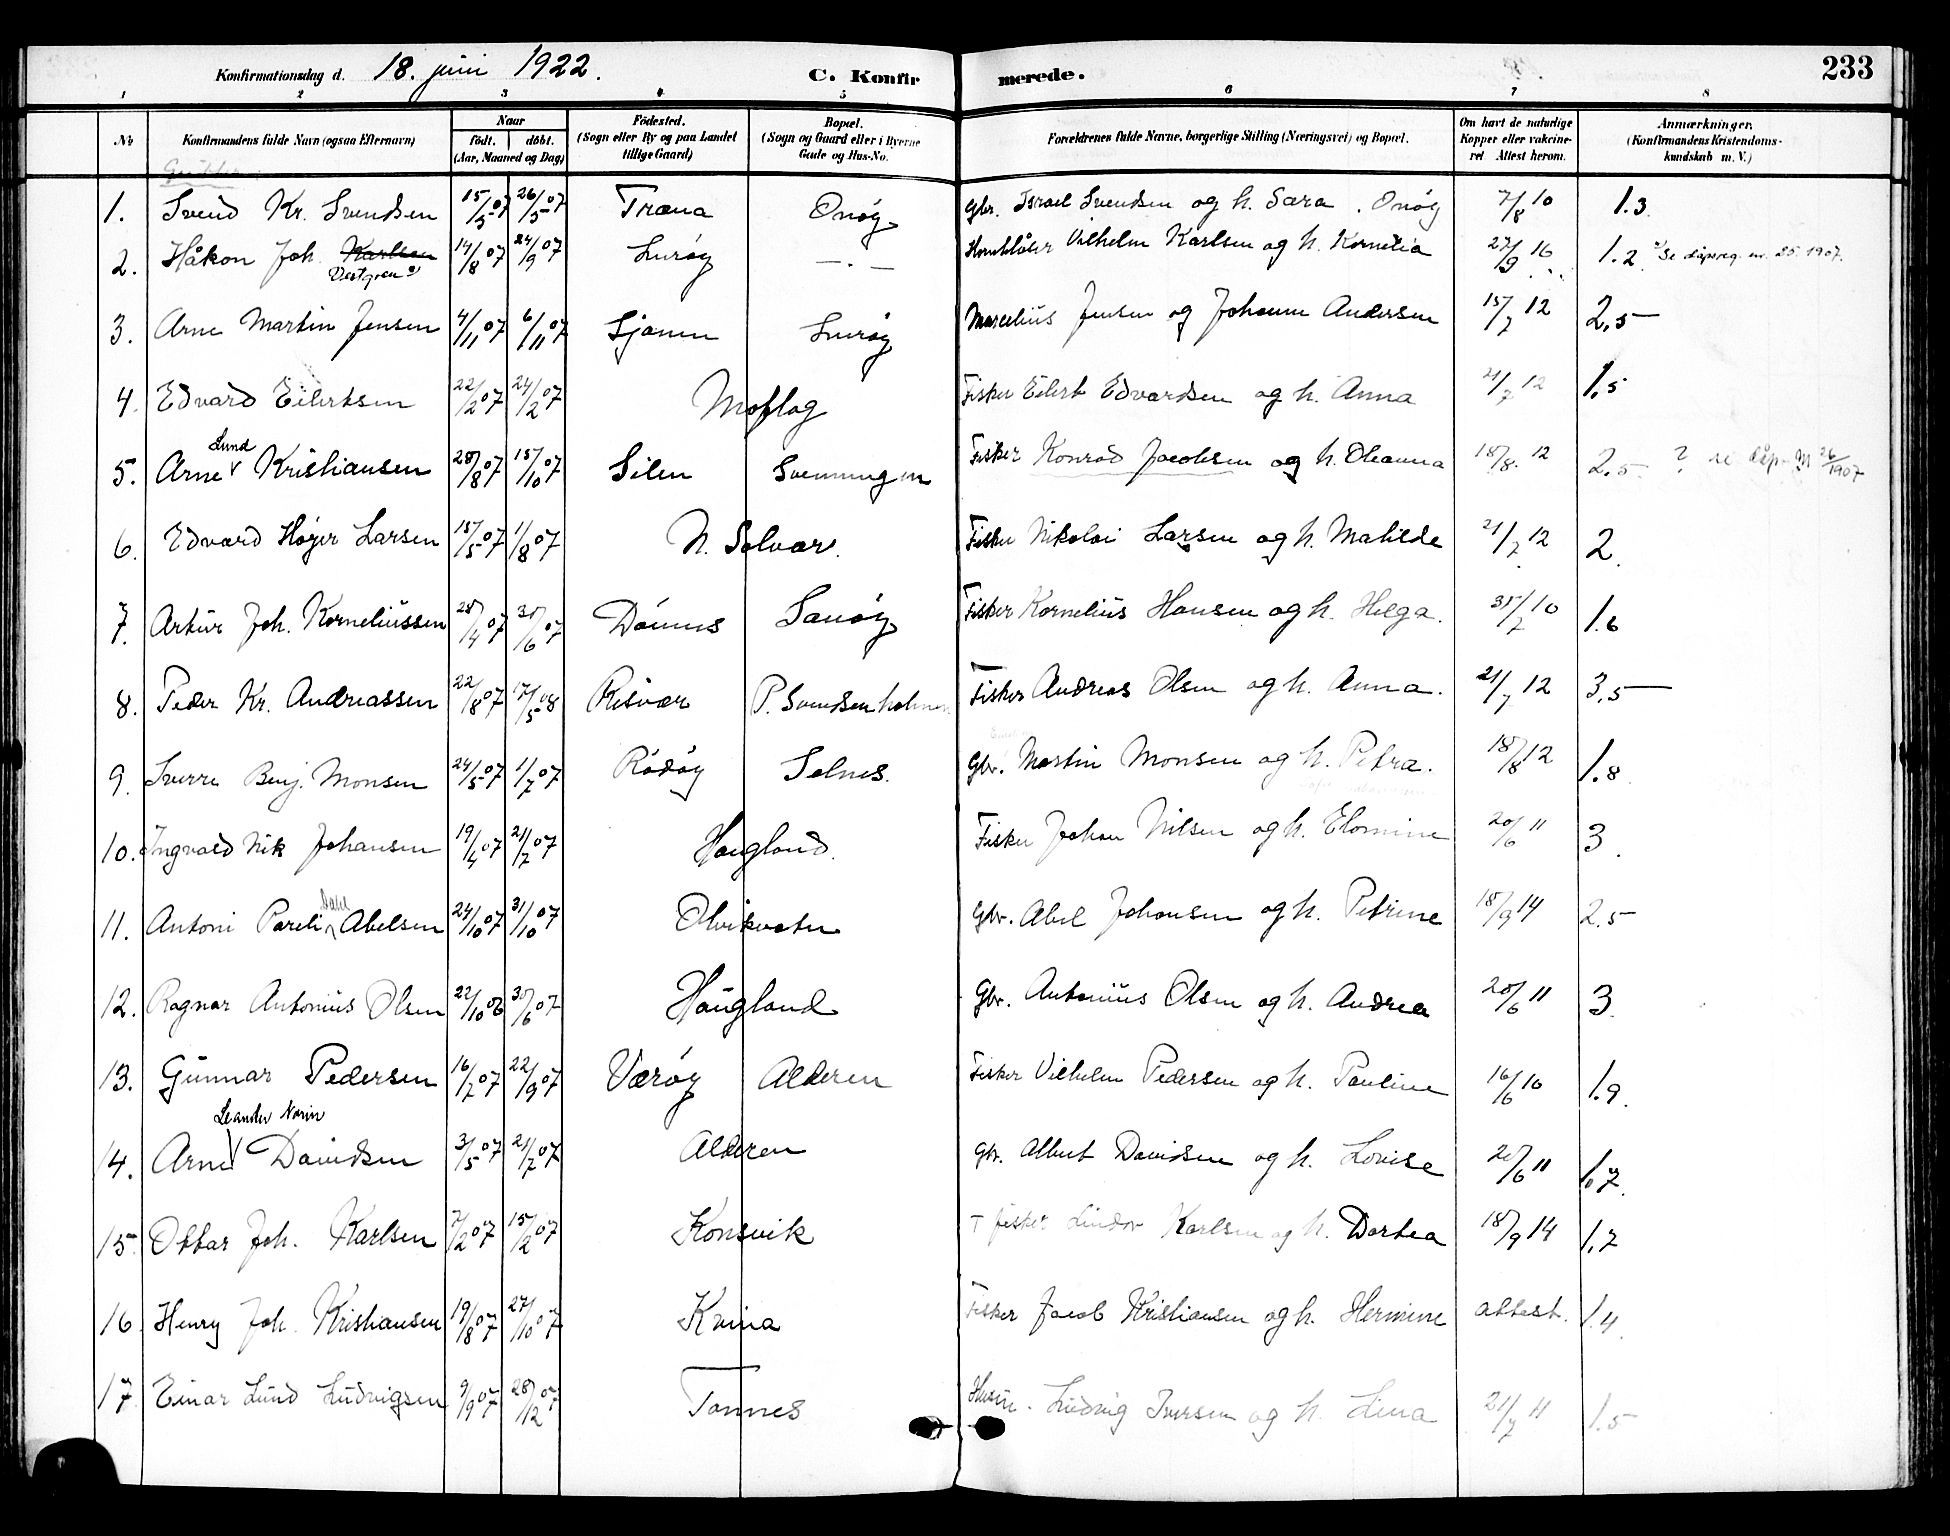 Konfirmationsdag d. 18. juni 1922. C. Konfirmerede. 233
1 2 3 4 5 6 7 8
No Konfirmandens fulde Navn (ogsaa Efternavn) Naar født. døbt. (Aar, Maaned og Dag) Fødested. (Sogn eller By og paa Landet tillige Gaard) Bopæl. (Sogn og Gaard eller i Byerne Gade og Hus-No. Forældrenes fulde Navne, borgerlige Stilling (Næringsvei) og Bopæl. Om havt de naturlige Kopper eller vakcineret. Attest herom. Anmærkninger. (Konfirmandens Kristendomskundskab m. V.)
Gutter
1. Svend Kr. Svendsen 15/5 07 26/5 07 Træna Onøy Gbr. Israel Svendsen og h. Sara. Onøy 7/8 10 1.3
2. Håkon Joh. Karlsen Vestgren 14/8 07 24/9 07 Lurøy — . — Vilhelm Karlsen og h. Kornelia 27/9 16 1.2 Se dåpsreg. nr. 25. 1907.
3. Arne Martin Jensen 4/11 07 6/11 07 Sjonen Lurøy Marcelius Jensen og Johanne Andersen 15/7 12 2,5
4. Edvard Eilertsen 22/2 07 24/2 07 Moflag Fisker Eilert Edvardsen og h. Anna 21/7 12 1,5
5. Arne Lund Kristiansen 28/8 07 15/10 07 Silen Svenningen Fisker Konrad Jacobsen og h. Oleanna 18/8 12 2.5 ? se dåp 26/1907
6. Edvard Høyer Larsen 15/5 07 1/8 07 N. Solvær. Fisker Nikolai Larsen og h. Matilde 21/7 12 2
7. Artur Joh. Korneliussen 28/4 07 30/6 07 Dønnes Sanøy Fisker Kornelius Hansen og h. Helga. 31/7 10 1.6
8. Peder Kr. Andreassen 22/8 07 17/5 08 Risvær P. Svendsenholmen Fisker Andreas Olsen og h. Anna. 21/7 12 3,5
9. Sverre Benj. Monsen 24/5 07 1/7 07 Rødøy Selnes. Gbr. Martin Monsen og h. Petra. 18/8 12 1.8
10. Ingvald Nik Johansen 19/4 07 21/7 07 Haugland. Fisker Johan Nilsen og h. Elomine 20/6 11 3
11. Antoni Pareli Dahl Abelsen 24/10 07 31/10 07 Olvikvatn Gbr. Abel Johansen og h. Petrine 18/9 14 2.5
12. Ragnar Antonius Olsen 22/10 06 30/6 07 Haugland Gbr. Antonius Olsen og h. Andrea 20/6 11 3
13. Gunnar Pedersen 16/7 07 22/9 07 Værøy Alderen Fisker Vilhelm Pedersen og h. Pauline 16/6 10 1.9
14. Arne Leander Norin Davidsen 3/5 07 21/7 07 Alderen Gbr. Albert Davidsen og h. Lovise 20/6 11 1,7
15. Ottar Joh. Karlsen 7/2 07 15/2 07 Konsvik fisker Lindor Karlsen og h. Dortea 18/9 14 1,7
16 Henry Joh. Kristiansen 19/8 07 27/10 07 Kvina Fisker Jacob Kristiansen og h. Hermine attest. 1.4
17. Einar Lund Ludvigsen 9/9 07 28/12 07 Tonnes Husm. Ludvig Iversen og h. Lina 21/7 11 1.5